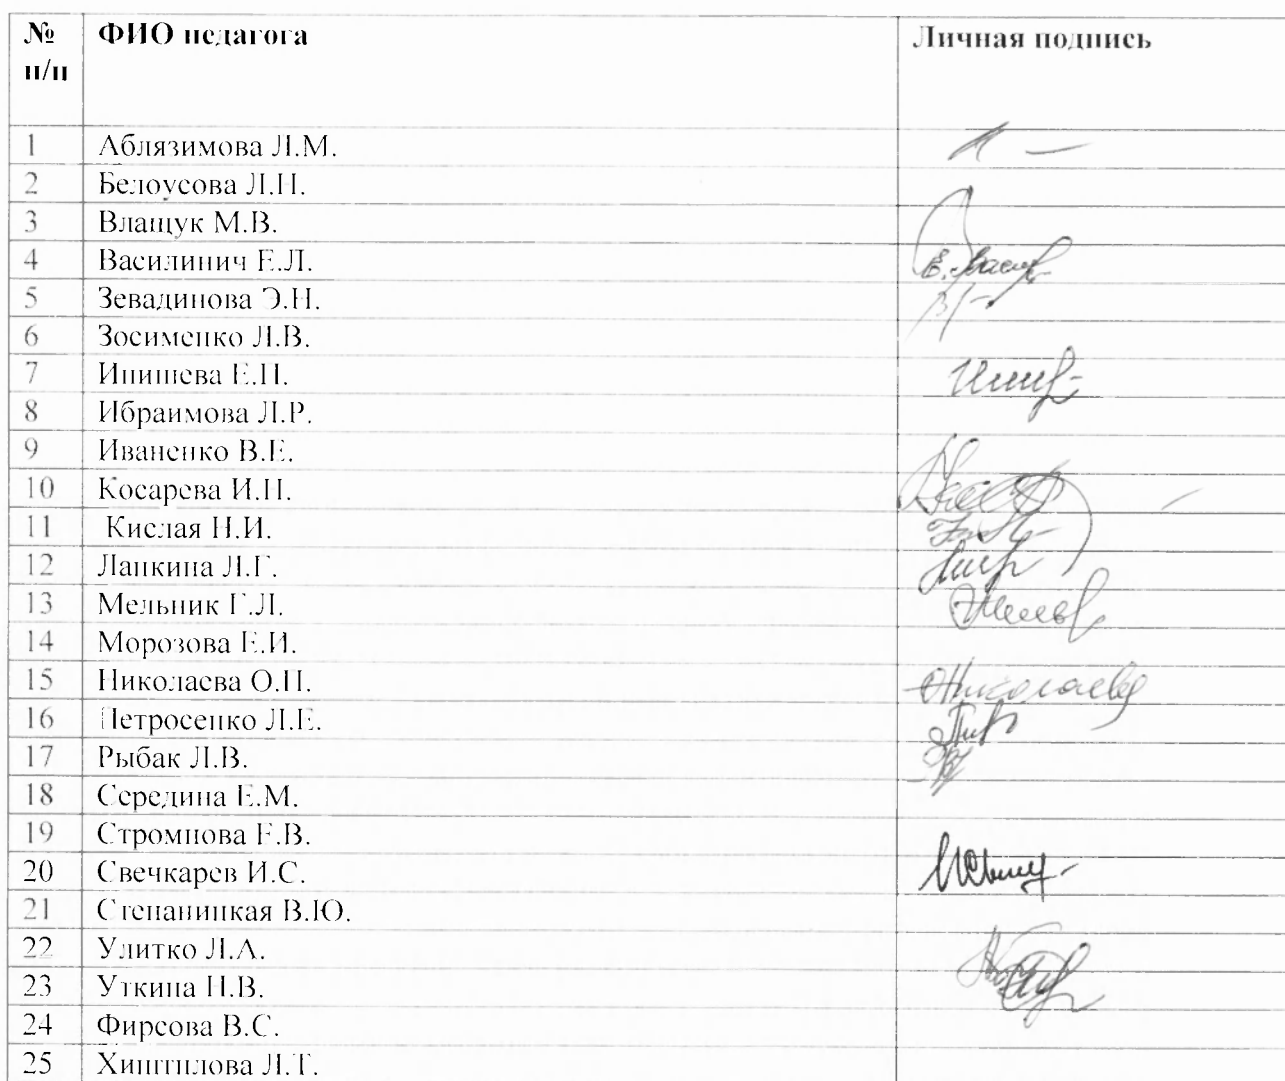 № ФИО педагога Личная подпись
п/п
1 Аблязимова Л.М.
2 Белоусова Л.Н.
3 Влащук М.В.
4 Василинич Е.Л.
5 Зевадинова Э.Н.
6 Зосименко Л.В.
7 Инишева Е.П.
8 Ибраимова Л.Р.
9 Иваненко В.Е.
10 Косарева И.Н.
11 Кислая Н.И.
12 Лапкина Л.Г.
13 Мельник Г.Л.
14 Морозова Е.И.
15 Николаева О.П. Николаева
16 Петросенко Л.Е.
17 Рыбак Л.В.
18 Середина Е.М.
19 Стромнова Е.В.
20 Свечкарев И.С.
21 Степаницкая В.Ю.
22 Улитко Л.А.
23 Уткина Н.В.
24 Фирсова В.С.
25 Л.Т.